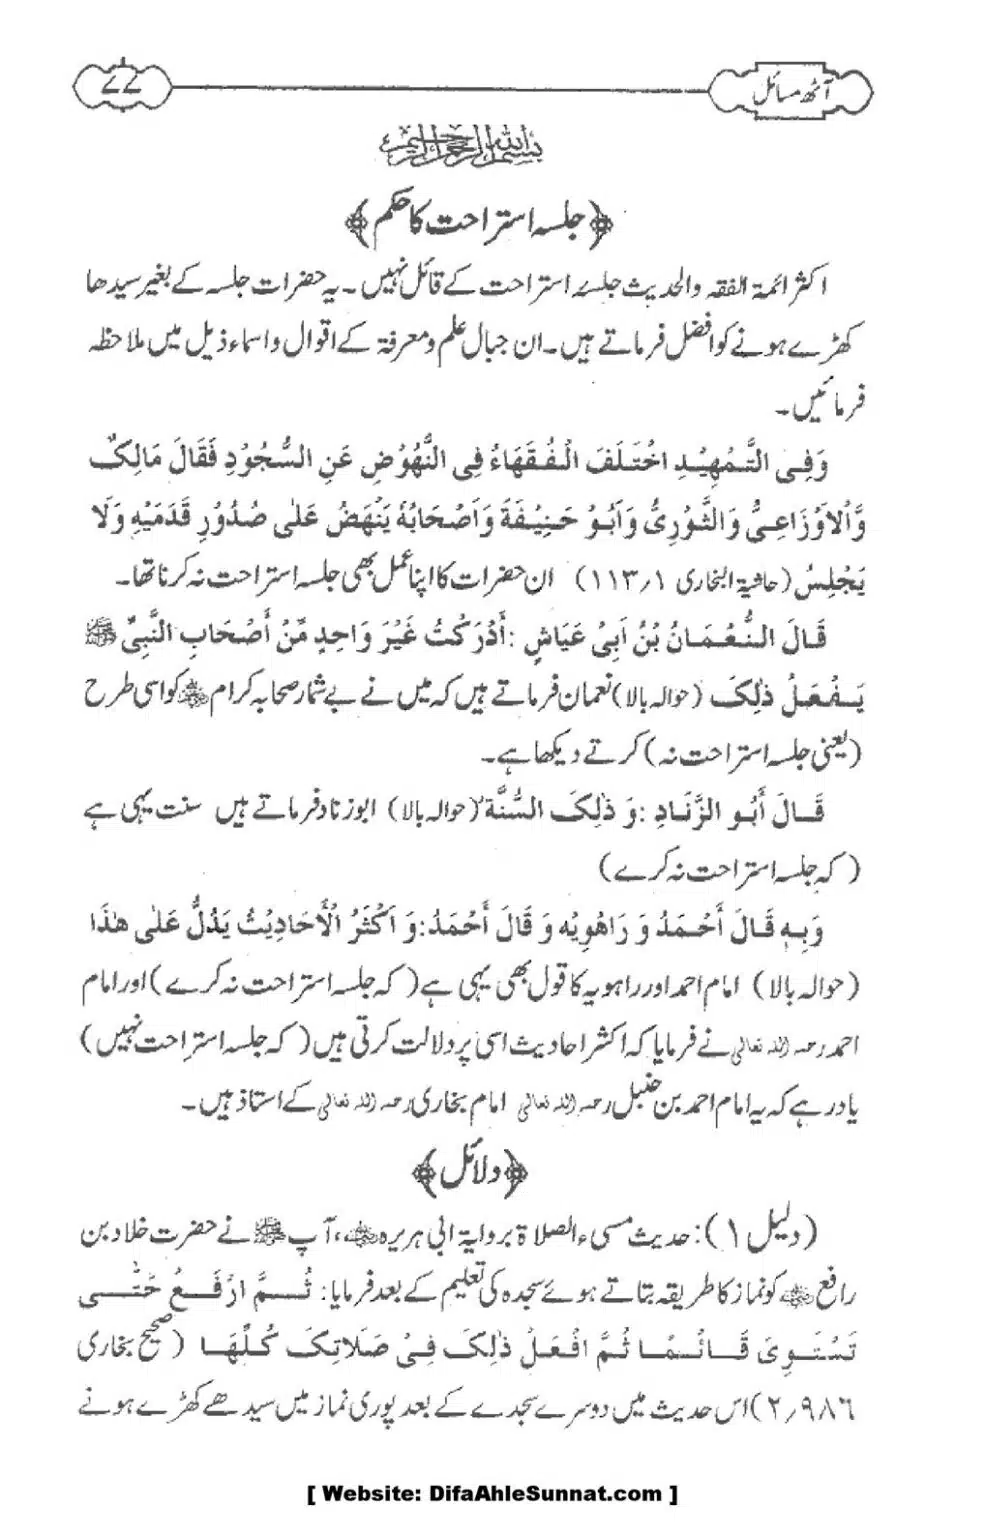 آٹھ مسائل
۷۷
بسم اللہ الرحمن الرحیم
﴿جلسہ استراحت کا حکم﴾
اکثر ائمۃ الفقہ والحدیث جلسۂ استراحت کے قائل نہیں۔ یہ حضرات جلسہ کے بغیر سیدھا
کھڑے ہونے کو افضل فرماتے ہیں۔ ان جبال علم و معرفۃ کے اقوال و اسماء ذیل میں ملاحظہ
فرمائیں۔
وَفِی التَّمْهِیْدِ اخْتَلَفَ الْفُقَهَاءُ فِی النُّهُوْضِ عَنِ السُّجُوْدِ فَقَالَ مَالِکٌ
وَّالْاَوْزَاعِیُّ وَالثَّوْرِیُّ وَاَبُوْ حَنِیْفَةَ وَاَصْحَابُهٗ یَنْهَضُ عَلٰی صُدُوْرِ قَدَمَیْهِ وَلَا
یَجْلِسُ (حاشیۃ البخاری ۱؍۱۱۳) ان حضرات کا اپنا عمل بھی جلسہ استراحت نہ کرنا تھا۔
قَالَ النُّعْمَانُ بْنُ اَبِیْ عَیَاشٍ :أَدْرَکْتُ غَیْرَ وَاحِدٍ مِّنْ أَصْحَابِ النَّبِیِّ ﷺ
یَفْعَلُ ذٰلِکَ (حوالہ بالا) نعمان فرماتے ہیں کہ میں نے بے شمار صحابہ کرام ؓ کو اسی طرح
(یعنی جلسہ استراحت نہ) کرتے دیکھا ہے۔
قَالَ أَبُو الزَّنَادِ :وَ ذٰلِکَ السُّنَّةُ (حوالہ بالا) ابوزناد فرماتے ہیں سنت یہی ہے
(کہ جلسہ استراحت نہ کرے)
وَبِهٖ قَالَ أَحْمَدُ وَ رَاهُوِیْه وَ قَالَ أَحْمَدُ:وَ اَکْثَرُ الْأَحَادِیْثُ یَدُلُّ عَلٰی هٰذَا
(حوالہ بالا) امام احمد اور راہویہ کا قول بھی یہی ہے (کہ جلسہ استراحت نہ کرے) اور امام
احمد رحمہ اللہ تعالیٰ نے فرمایا کہ اکثر احادیث اسی پر دلالت کرتی ہیں (کہ جلسہ استراحت نہیں)
یاد رہے کہ یہ امام احمد بن حنبل رحمہ اللہ تعالیٰ امام بخاری رحمہ اللہ تعالیٰ کے استاذ ہیں۔
﴿دلائل﴾
(دلیل ۱): حدیث مسیء الصلاۃ بروایۃ ابی ہریرہ ؓ، آپ ﷺ نے حضرت خلاد بن
رافع ؓ کو نماز کا طریقہ بتاتے ہوئے سجدہ کی تعلیم کے بعد فرمایا: ثُمَّ ارْفَعْ حَتّٰی
تَسْتَوِیَ قَائِمًا ثُمَّ افْعَلْ ذٰلِکَ فِیْ صَلَاتِکَ کُلِّهَا (صحیح بخاری
۲؍۹۸۶) اس حدیث میں دوسرے سجدے کے بعد پوری نماز میں سیدھے کھڑے ہونے
[ Website: DifaAhleSunnat.com ]